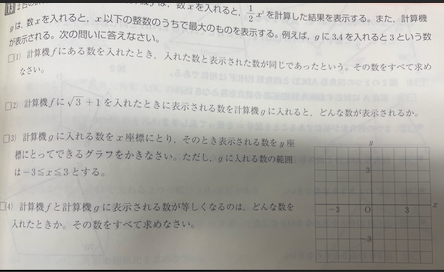 数xを入れると, 1/2 x²を計算した結果を表示する。また, 計算機
gは, 数xを入れると, x以下の整数のうちで最大のものを表示する。例えば, gに3.4を入れると3という数
が表示される。次の問いに答えなさい。
□(1) 計算機fにある数を入れたとき, 入れた数と表示された数が同じであったという。その数をすべて求め
なさい。
□(2) 計算機fに√3+1を入れたときに表示される数を計算機gに入れると, どんな数が表示されるか。
□(3) 計算機gに入れる数をx座標にとり, そのとき表示される数をy座
標にとってできるグラフをかきなさい。ただし, gに入れる数の範囲
は−3≦x≦3とする。
□(4) 計算機fと計算機gに表示される数が等しくなるのは, どんな数を
入れたときか。その数をすべて求めなさい。
y
3
−3 O 3 x
−3